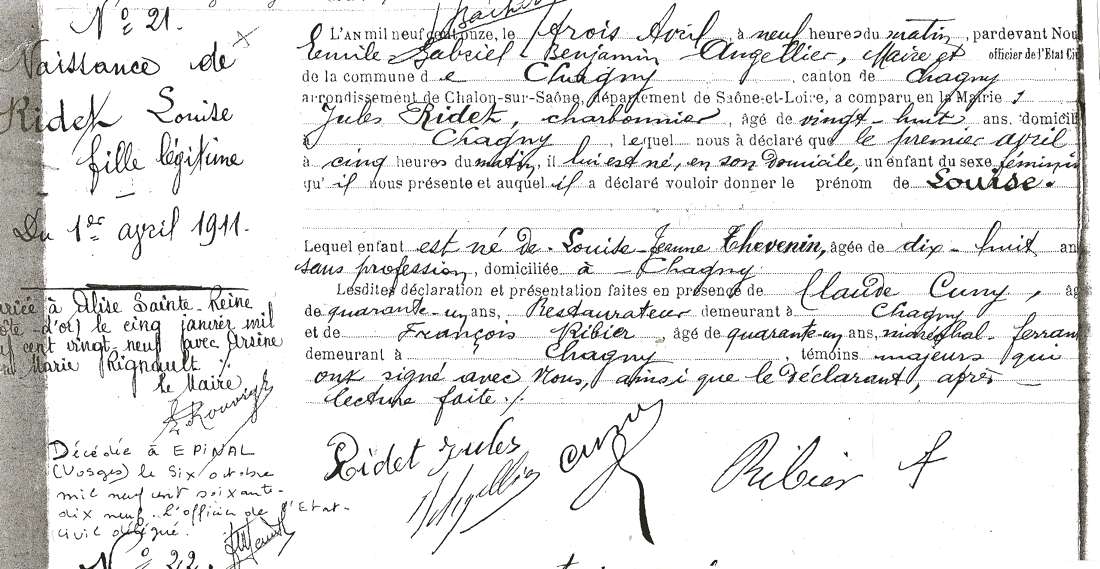 N° 21.
Naissance de
Ridet Louise
fille légitime
Du 1er avril 1911.
L'AN mil neuf cent onze, le trois Avril, à neuf heures du matin, pardevant Nou
Emile Gabriel Benjamin Angellier, Maire et officier de l'Etat Ci
de la commune de Chagny canton de Chagny
arrondissement de Chalon-sur-Saône, département de Saône-et-Loire, a comparu en la Mairie,
Jules Ridet, charbonnier, âgé de vingt-huit ans. domicili
à Chagny, lequel nous a déclaré que le premier avril
à cinq heures du matin, il lui est né, en son domicile, un enfant du sexe féminin
qu'il nous présente et auquel il a déclaré vouloir donner le prénom de Louise.
Lequel enfant est né de Louise-Jeanne Thevenin, âgée de dix-huit an
sans profession, domiciliée à Chagny
Lesdites déclaration et présentation faites en présence de Claude Cuny, âg
de quarante-un ans, Restaurateur demeurant à Chagny
et de François Ribier, âgé de quarante-un ans, maréchal-ferran
demeurant à Chagny, témoins majeurs qui
ont signé avec Nous, ainsi que le déclarant, après
lecture faite ./.
Ridet Jules
Angellier
Cuny
Ribier F
ariée à Alise Sainte-Reine
ôte-d'or) le cinq janvier mil
uf cent vingt-neuf avec Arsène
Marie Rignault ./.
le Maire
Décédée à EPINAL
(Vosges) le six octobre
mil neuf cent soixante-
dix neuf. l'officier de l'Etat-
civil délégué.
N° 22.